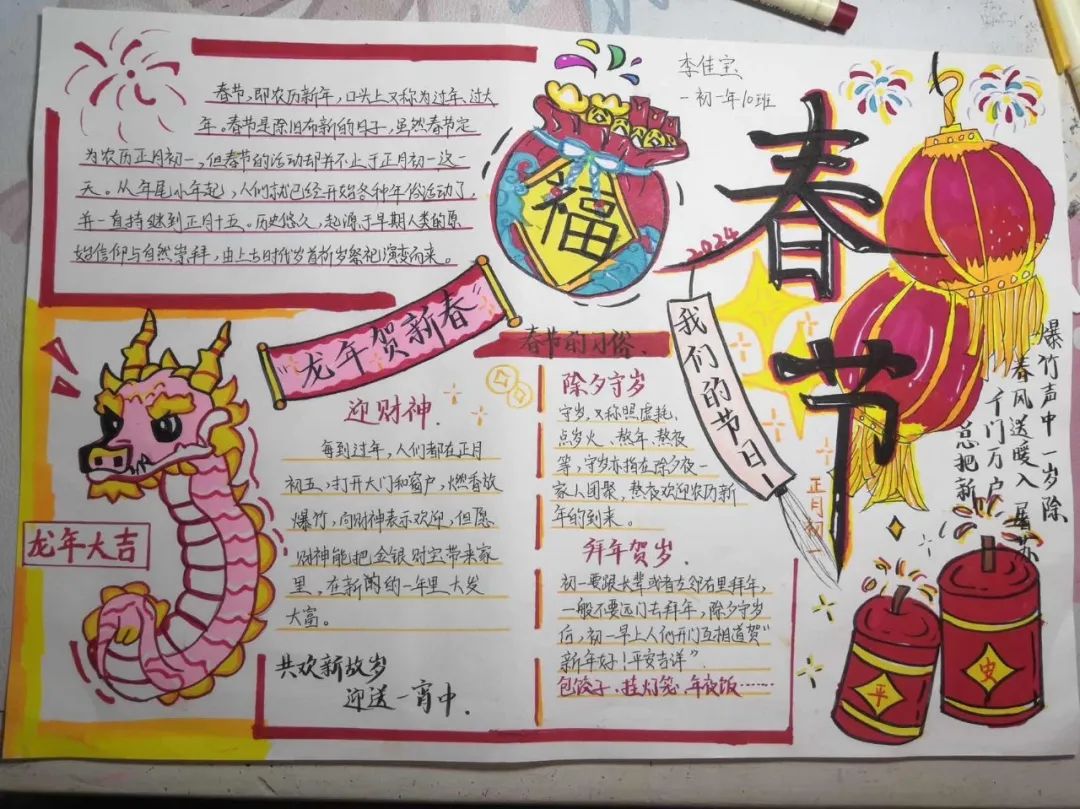 李佳宝
初一年10班
春节,即农历新年,口头上又称为过年、过大
年。春节是除旧布新的日子,虽然春节定
为农历正月初一,但春节的活动却并不止于正月初一这一
天。从年尾小年起,人们就已经开始各种年俗活动了,
并一直持继到正月十五。历史悠久,起源于早期人类的原
始信仰与自然崇拜,由上古时代岁首祈岁祭祀演变而来。
福
春节
2024
我们的节日!
正月初一
爆竹声中一岁除
春风送暖入屠苏
千门万户
总把新
“龙年贺新春”
龙年大吉
迎财神.
每到过年,人们都在正月
初五,打开大门和窗户,燃香放
爆竹,向财神表示欢迎,但愿
财神能把金银财宝带来家
里,在新的一年里大发
大富。
共欢新故岁
迎送一宵中.
春节的习俗.
除夕守岁
守岁,又称照虚耗、
点岁火、熬年、熬夜
等,守岁亦指在除夕夜一
家人团聚,熬夜欢迎农历新
年的到来。
拜年贺岁.
初一要跟长辈或者左邻右里拜年,
一般不要远门去拜年,除夕守岁
后,初一早上人们开门互相道贺“
新年好!平安吉祥”.
包饺子、挂灯笼、年夜饭……
平
安